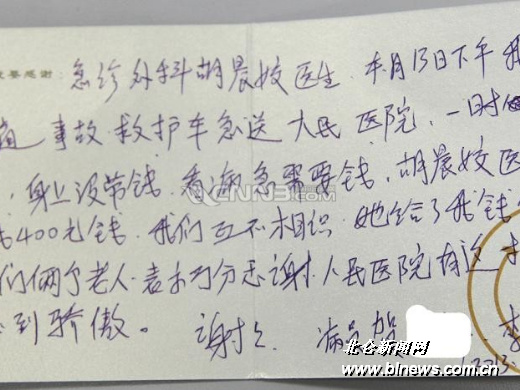 要感谢:急诊外科胡晨姣医生 本月13日下午 我
事故 救护车急送 人民医院,一时
,身上没带钱 看病急需要钱,胡晨姣医
400元钱 我们互不相识 她给了我钱
们俩个老人 表示万分感谢.人民医院有这
到骄傲。 谢谢 满员贺 李
北仑新闻网
www.blnews.com.cn